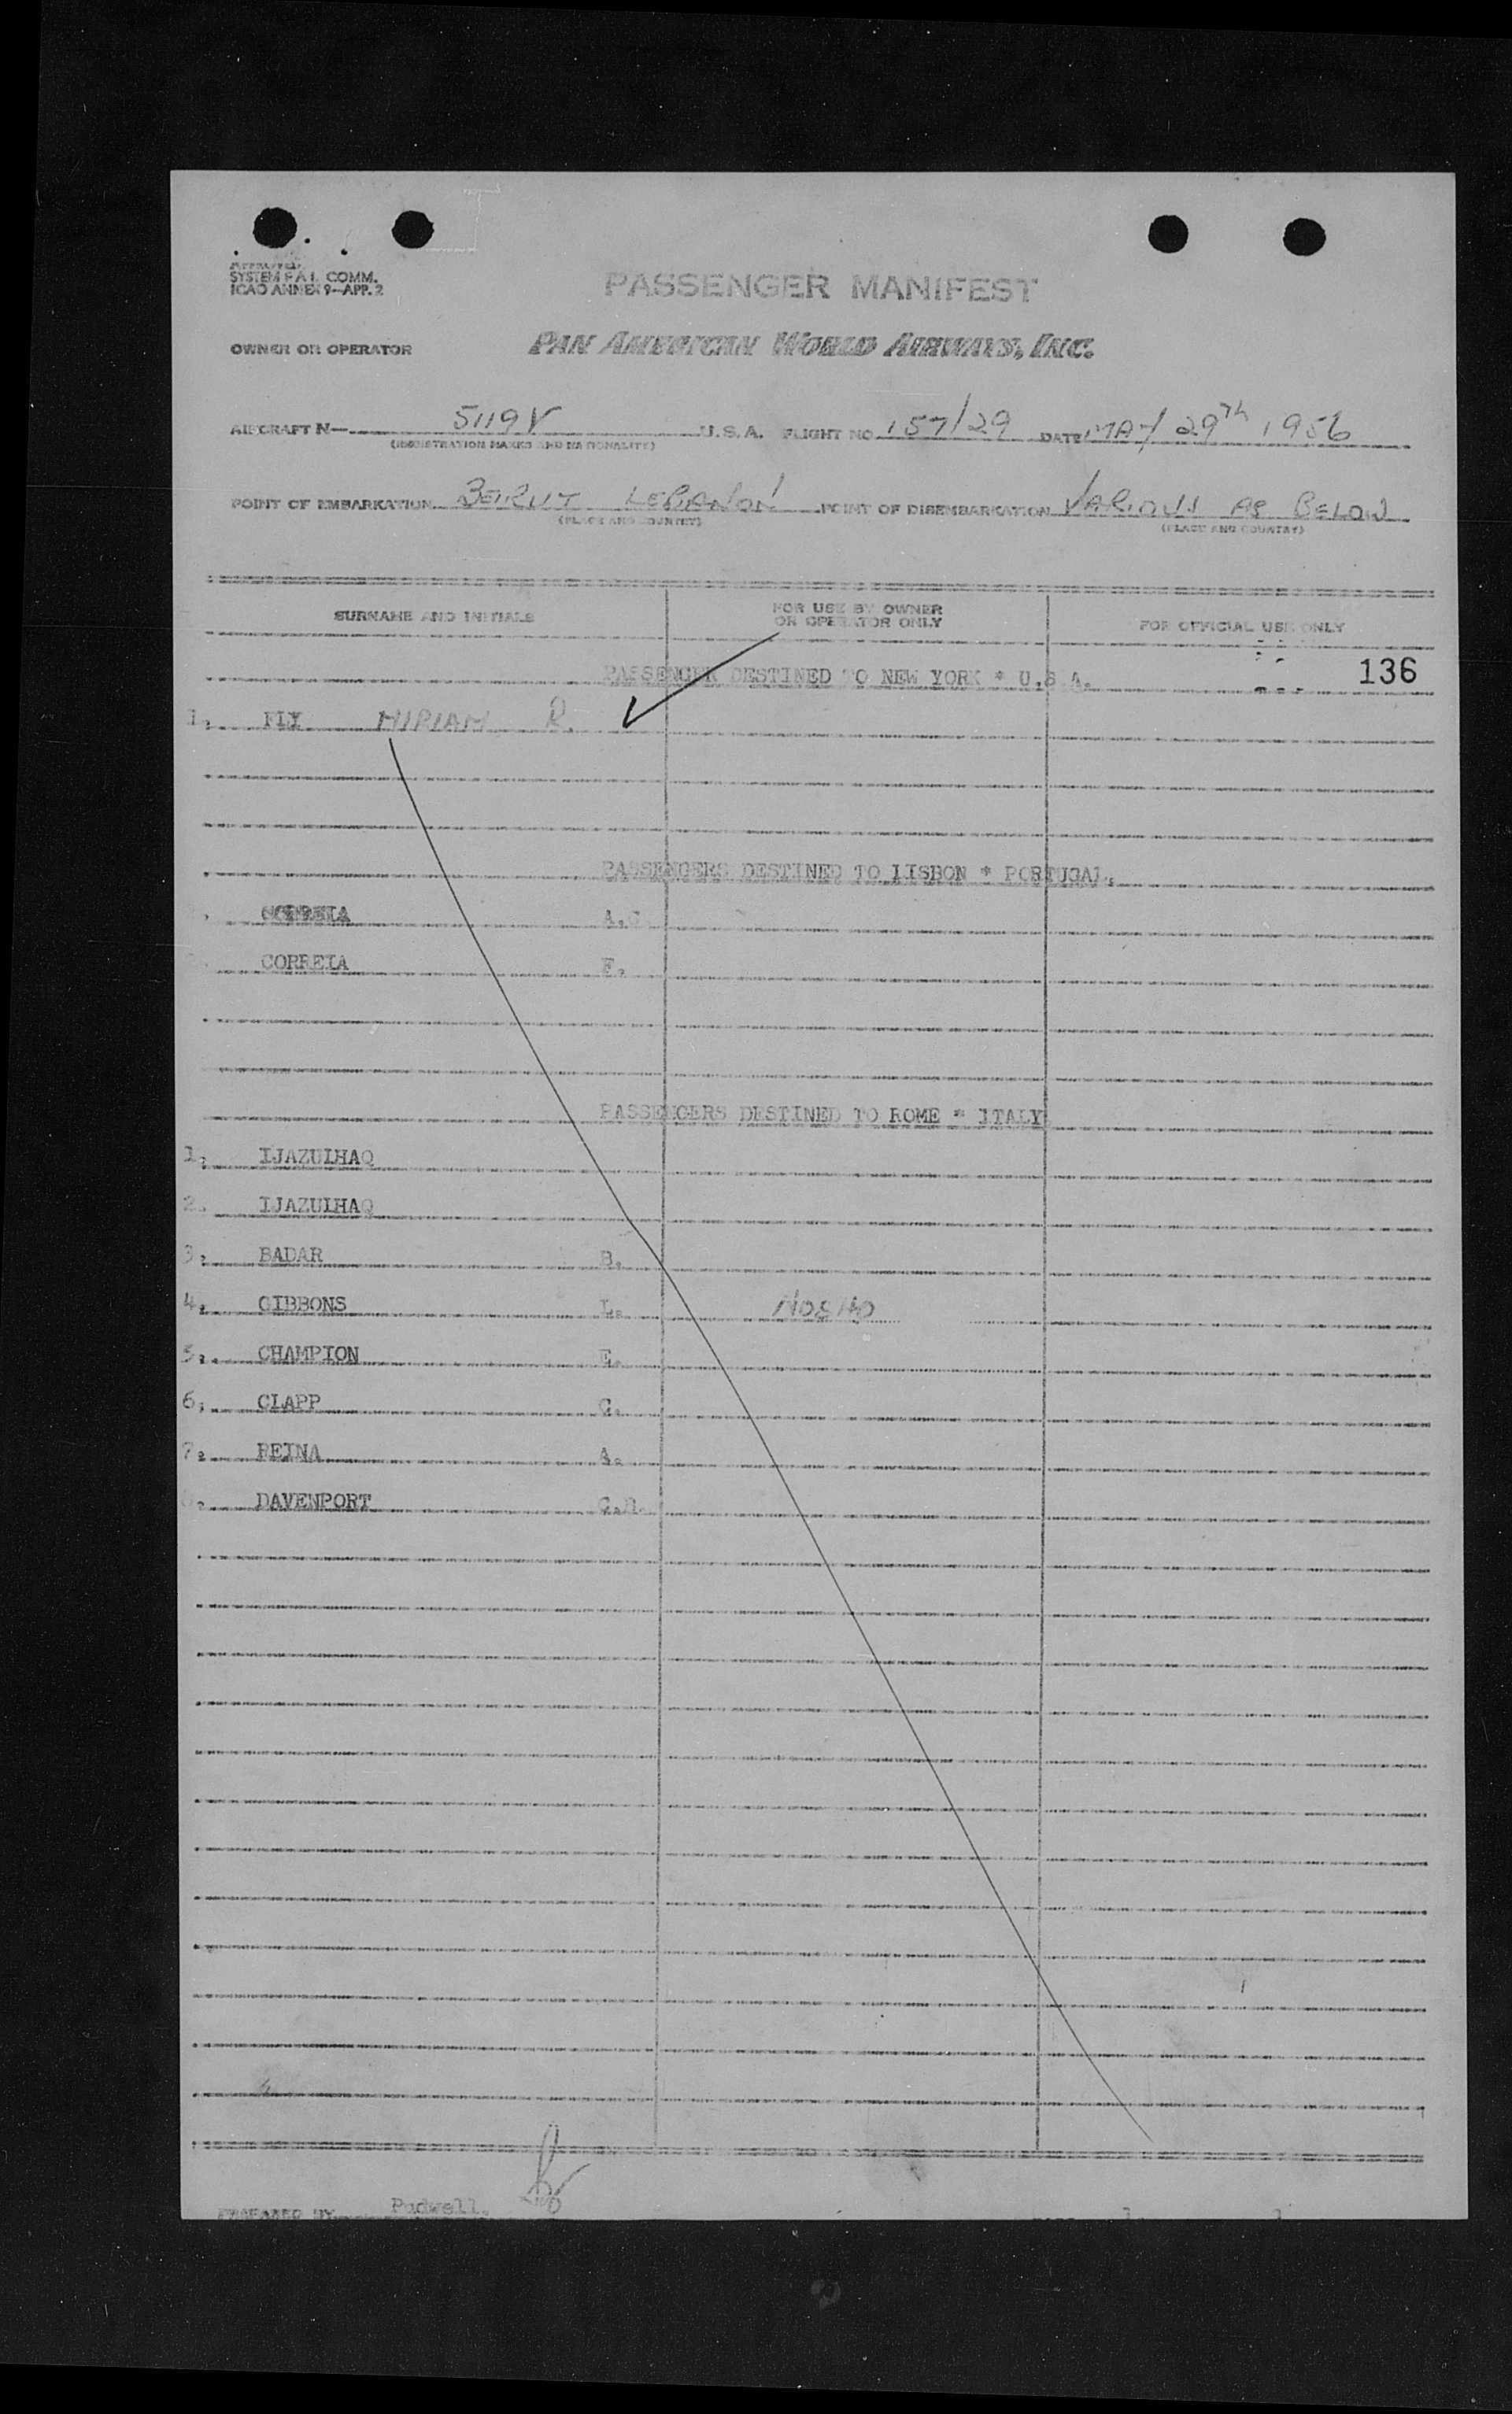 APPROVED.
SYSTEM F.A.L. COMM.
ICAO ANNEX 9-APP. 2
PASSENGER MANIFEST
OWNER OR OPERATOR PAN AMERICAN WORLD AIRWAYS, INC.
AIRCRAFT N— 5119V U.S.A. FLIGHT NO. 157/29 DATE MAY 29TH 1956
(REGISTRATION MARKS AND NATIONALITY)
POINT OF EMBARKATION BEIRUT LEBANON POINT OF DISEMBARKATION VARIOUS AS BELOW
(PLACE AND COUNTRY) (PLACE AND COUNTRY)
SURNAME AND INITIALS FOR USE BY OWNER OR OPERATOR ONLY FOR OFFICIAL USE ONLY
PASSENGER DESTINED TO NEW YORK * U.S.A. 136
1. FLY MIRIAM R.
PASSENGERS DESTINED TO LISBON * PORTUGAL.
CORREIA A.C
CORREIA F.
PASSENGERS DESTINED TO ROME * ITALY
1. IJAZULHAQ
2. IJAZULHAQ
3. BADAR B.
4. GIBBONS L. NOSHO
5. CHAMPION E.
6. CLAPP C.
7. REINA A.
DAVENPORT
PREPARED BY Padwell.